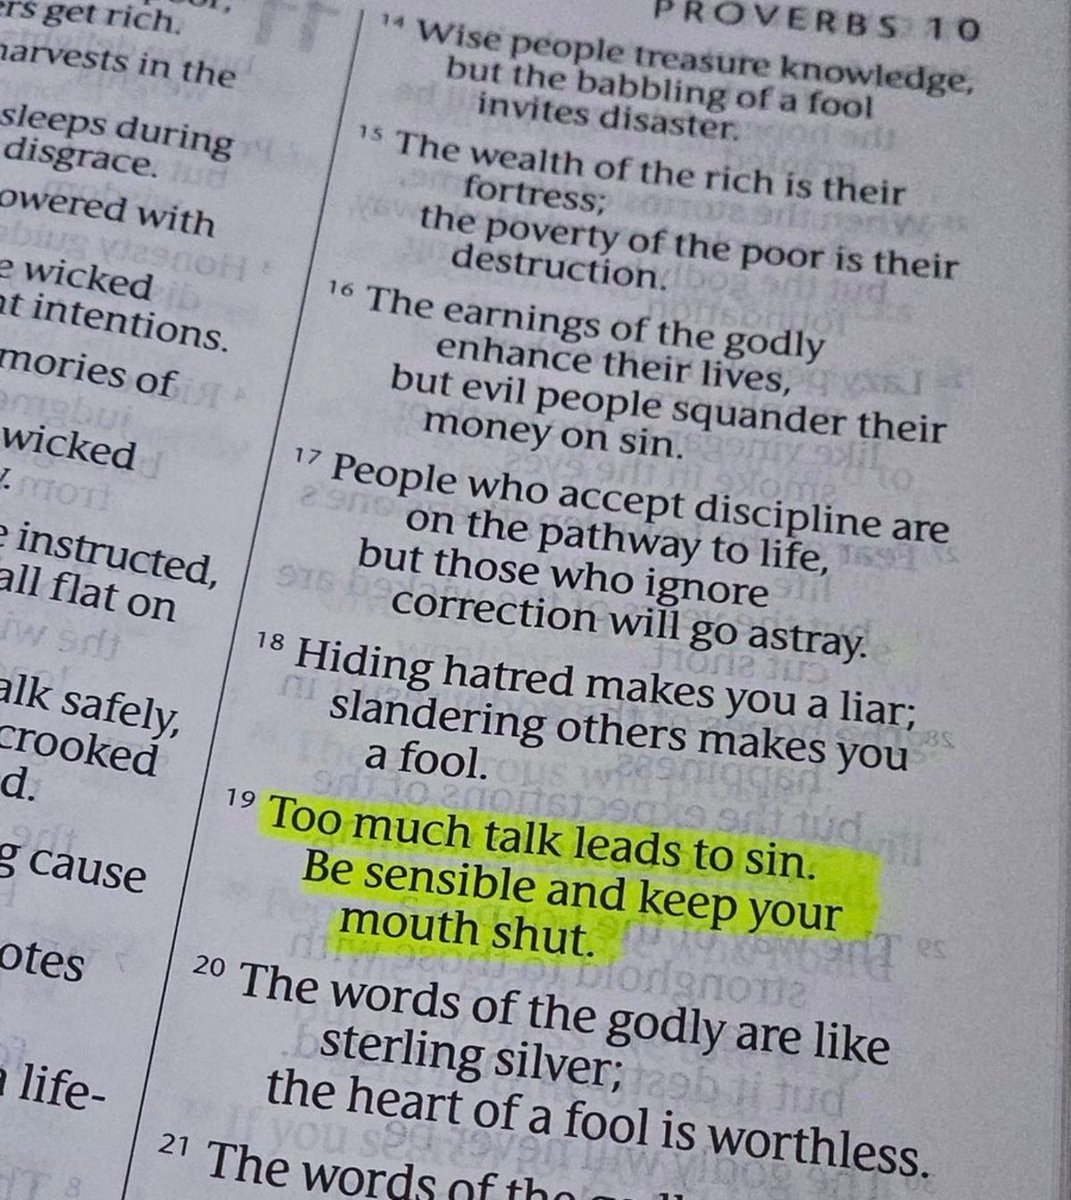 PROVERBS 10
rs get rich.
harvests in the
sleeps during
disgrace.
owered with
wicked
intentions.
mories of
wicked
instructed,
all flat on
alk safely,
crooked
d.
cause
otes
life-
14 Wise people treasure knowledge,
but the babbling of a fool
invites disaster.
15 The wealth of the rich is their
fortress;
the poverty of the poor is their
destruction.
16 The earnings of the godly
enhance their lives,
but evil people squander their
money on sin.
17 People who accept discipline are
on the pathway to life,
but those who ignore
correction will go astray.
18 Hiding hatred makes you a liar;
slandering others makes you
a fool.
19 Too much talk leads to sin.
Be sensible and keep your
mouth shut.
20 The words of the godly are like
sterling silver;
the heart of a fool is worthless.
21 The words of the